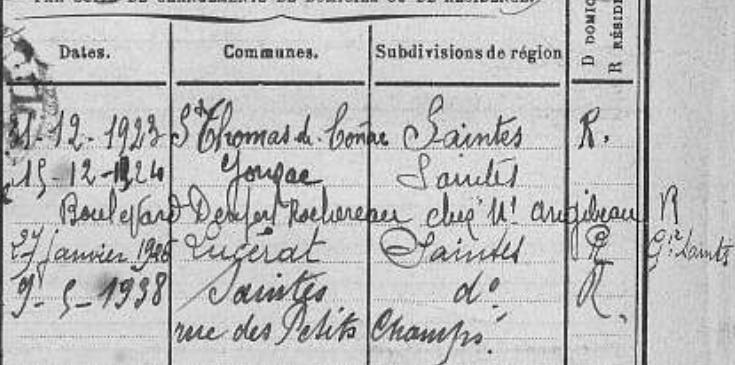 PAR SUITE DE CHANGEMENTS DE DOMICILE OU DE RÉSIDENCE.
Dates. Communes. Subdivisions de région D DOMIC R RÉSIDE
31-12-1923 St Thomas de Conac Saintes R.
15-12-1924 Saintes
Boulevard Denfert Rochereau chez Mr Angibeau R
27 janvier 1926 Lucérat Saintes R
9-5-1938 Saintes do R.
rue des Petits Champs.